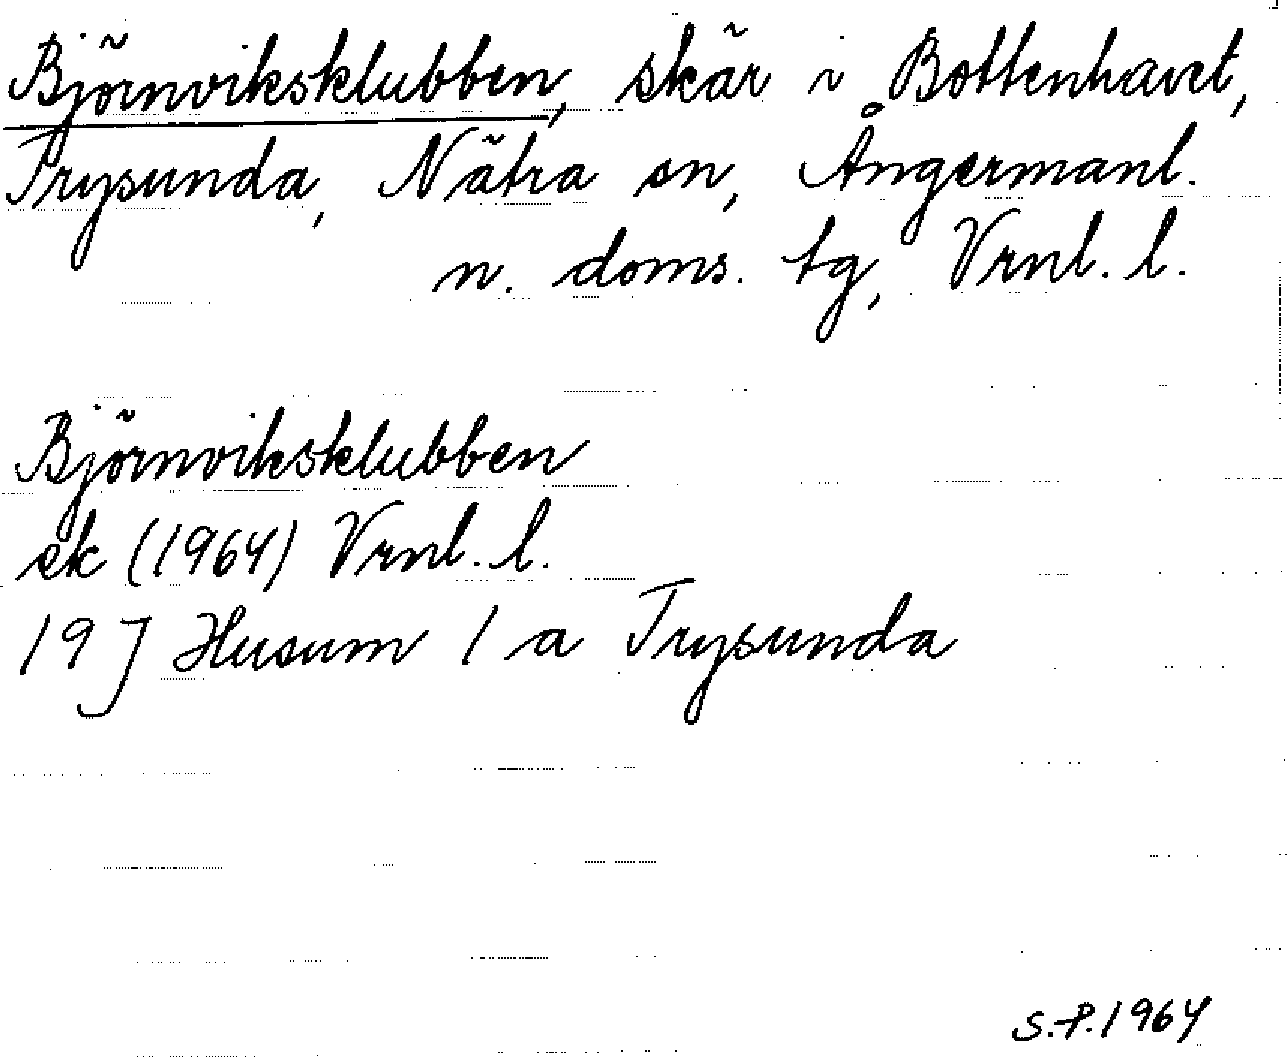 Björnviksklubben, skär i Bottenhavet,
Trysunda, Nätra sn, Ångermanl.
n. doms. tg, Vrnl. l.
Björnviksklubben
ek (1964) Vrnl. l.
19 J Husum 1 a Trysunda
S.P. 1964